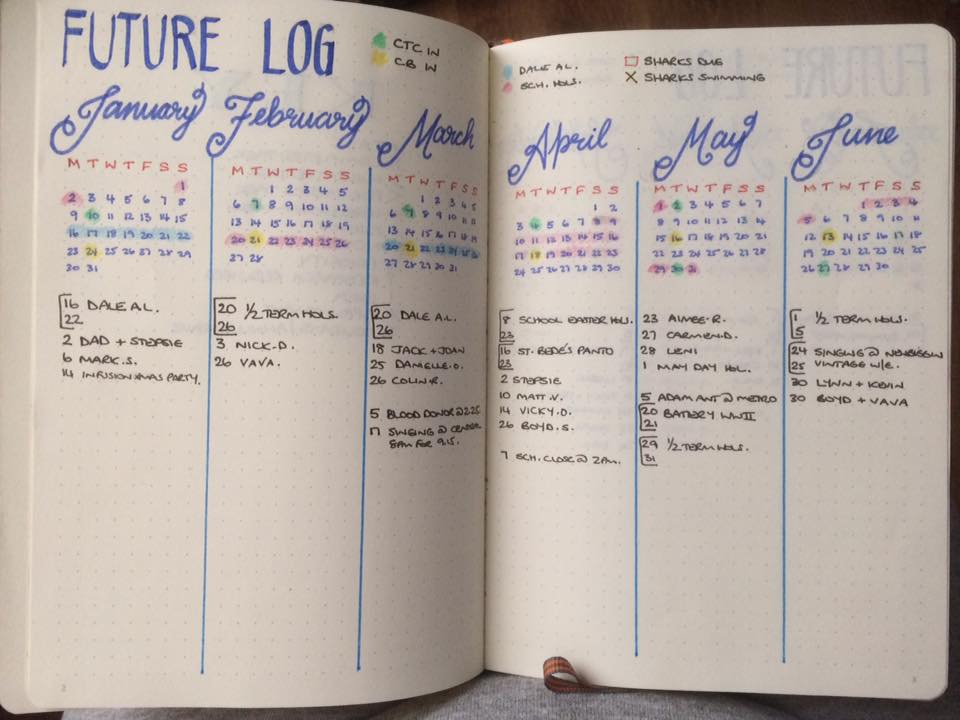 FUTURE LOG
CTC IN
CB IN
January
M T W T F S S
1
2 3 4 5 6 7 8
9 10 11 12 13 14 15
16 17 18 19 20 21 22
23 24 25 26 27 28 29
30 31
16 DALE A.L.
22
2 DAD + STEPSIE
6 MARK.S.
14 INFUSION XMAS PARTY.
February
M T W T F S S
1 2 3 4 5
6 7 8 9 10 11 12
13 14 15 16 17 18 19
20 21 22 23 24 25 26
27 28
20 1/2 TERM HOLS.
26
3 NICK.D.
26 VAVA.
March
M T W T F S S
1 2 3 4 5
6 7 8 9 10 11 12
13 14 15 16 17 18 19
20 21 22 23 24 25 26
27 28 29 30 31
20 DALE A.L.
26
18 JACK + JOAN
25 DANIELLE.O.
26 COLIN.R.
5 BLOOD DONOR @ 2.25
17 SINGING @ CENTER
8AM FOR 9.15.
2
DALE AL.
SCH. HOLS.
SHARKS DUE
SHARKS SWIMMING
April
M T W T F S S
1 2
3 4 5 6 7 8 9
10 11 12 13 14 15 16
17 18 19 20 21 22 23
24 25 26 27 28 29 30
8 SCHOOL EASTER HOL.
23
16 ST. BEDE'S PANTO
23
2 STEPSIE
10 MATT.V.
14 VICKY.D.
26 BOYD.S.
7 SCH. CLOSE @ 2PM.
May
M T W T F S S
1 2 3 4 5 6 7
8 9 10 11 12 13 14
15 16 17 18 19 20 21
22 23 24 25 26 27 28
29 30 31
23 AIMEE.R.
27 CARMEN.D.
28 LENI
1 MAY DAY HOL.
5 ADAM ANT @ METRO
20 BATTERY WWII
21
29 1/2 TERM HOLS.
31
June
M T W T F S S
1 2 3 4
5 6 7 8 9 10 11
12 13 14 15 16 17 18
19 20 21 22 23 24 25
26 27 28 29 30
1 1/2 TERM HOLS.
5
24 SINGING @ NEWBIGGIN
25 VINTAGE W/E.
30 LYNN + KEVIN
30 BOYD + VAVA
3